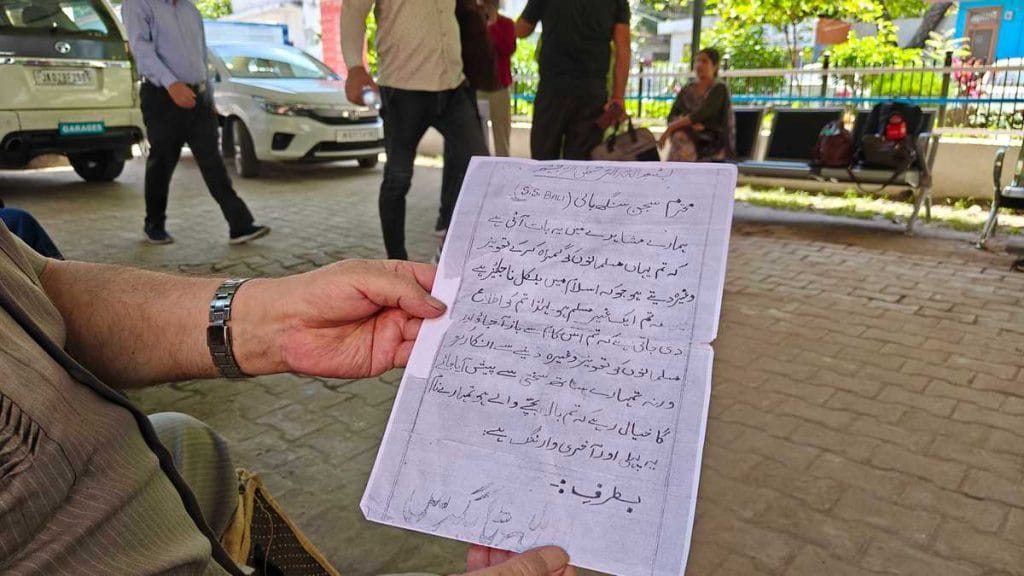 بسم اللہ الرحمن الرحیم
محترم سبجی سنگھ بالی (S.S. BALI)
ہمارے مشاہدے میں یہ بات آئی ہے
کہ تم یہاں مسلمانوں کو گمراہ کر کے تعویز
وغیرہ دیتے ہو جو کہ اسلام میں بلکل ناجائز ہے
تم ایک غیر مسلم ہو لہذا تم کو اطلاع
دی جاتی ہے کہ تم اس کام سے باز آجاؤ اور
مسلمانوں کو تعویز وغیرہ دینے سے انکار کرو
ورنہ تمہارے ساتھ سختی سے پیش آیا جائے
گا خیال رہے کہ تم بال بچے والے ہو
یہ پہلی اور آخری وارننگ ہے۔
بطرف :-
GARAGES